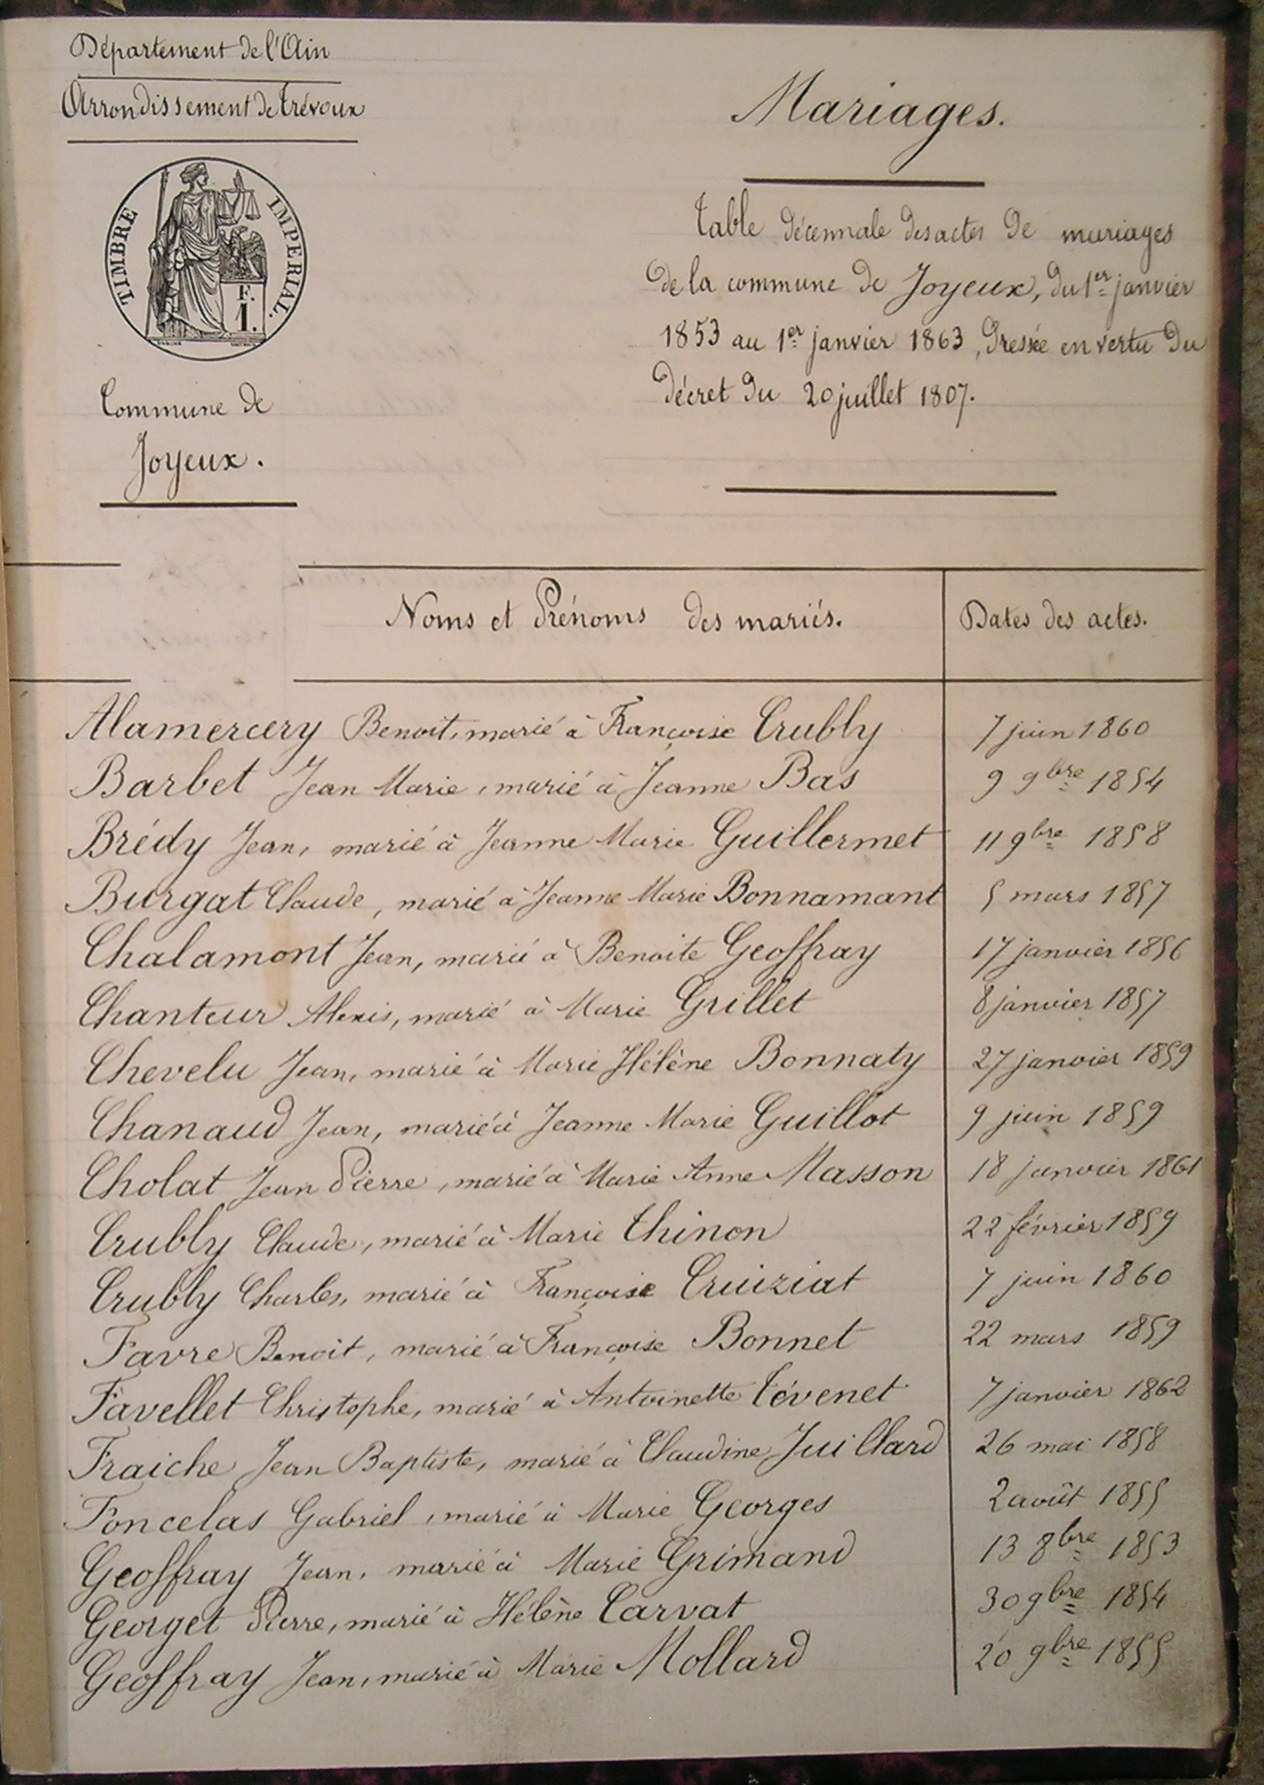 Département de l'Ain
Arrondissement de Trévoux
TIMBRE IMPERIAL.
F.
1.
Commune de
Joyeux.
Mariages.
Table décennale des actes de mariages
de la commune de Joyeux, du 1er janvier
1853 au 1er janvier 1863, dressée en vertu du
décret du 20 juillet 1807.
Noms et Prénoms des mariés. Dates des actes.
Alamercery Benoit, marié à Françoise Crubly 7 juin 1860
Barbet Jean Marie, marié à Jeanne Bas 9 9bre 1854
Brédy Jean, marié à Jeanne Marie Guillermet 11 9bre 1858
Burgat Claude, marié à Jeanne Marie Bonnamant 5 mars 1857
Chalamont Jean, marié à Benoite Geoffray 17 janvier 1856
Chanteur Alexis, marié à Marie Grillet 8 janvier 1857
Chevelu Jean, marié à Marie Hélène Bonnaty 27 janvier 1859
Chanaud Jean, marié à Jeanne Marie Guillot 9 juin 1859
Cholat Jean Pierre, marié à Marie Anne Masson 18 janvier 1861
Crubly Claude, marié à Marie Thinon 22 février 1859
Crubly Charles, marié à Françoise Cruiziat 7 juin 1860
Favre Benoit, marié à Françoise Bonnet 22 mars 1859
Favellet Christophe, marié à Antoinette Tévenet 7 janvier 1862
Fraiche Jean Baptiste, marié à Claudine Juillard 26 mai 1858
Foncelas Gabriel, marié à Marie Georges 2 août 1855
Geoffray Jean, marié à Marie Grimand 13 8bre 1853
Georget Pierre, marié à Hélène Carvat 30 9bre 1854
Geoffray Jean, marié à Marie Mollard 20 9bre 1855